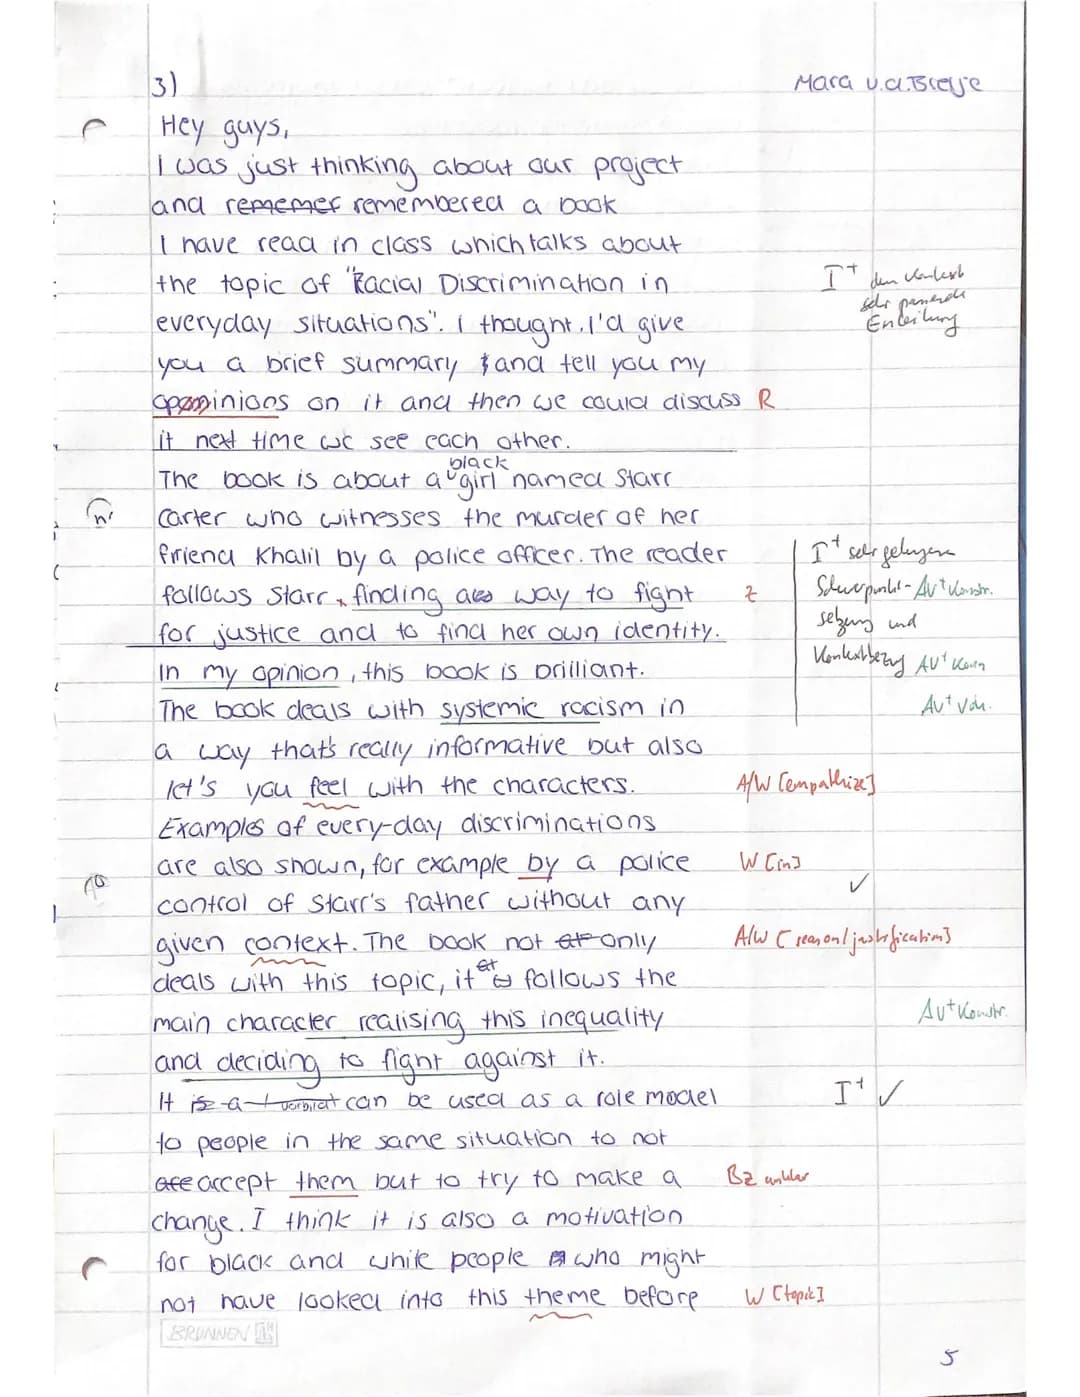 3)
Mara v.d.
Hey guys,
I was just thinking about our project
and rememer remembered a book
I have read in class which talks about
the topic of "Racial Discrimination in
I+ den Kontext
sehr passende
Einleitung
everyday situations". I thought, I'd give
you a brief summary and tell you my
opominions on it and then we could discuss R
it next time we see each other.
black
The book is about a girl named Starr
Carter who witnesses the murder of her
friend Khalil by a police officer. The reader
I+ sehr gelungene
follows Starr finding a way to fight Z
Schwerpunkt- AV+ Konstr.
for justice and to find her own identity.
setzung und
In my opinion, this book is brilliant.
Kontextbezug AV+
The book deals with systemic racism in
AV+
a way that's really informative but also
let's you feel with the characters. A/W [empathize]
Examples of every-day discriminations
are also shown, for example by a police W [in]
control of Starr's father without any ✓
given context. The book not only A/W [reason/justification]
deals with this topic, it follows the
main character realising this inequality AV+ Konstr.
and deciding to fight against it.
It is a can be used as a role model I+ ✓
to people in the same situation to not
accept them but to try to make a Bz unklar
change. I think it is also a motivation
for black and white people who might
not have looked into this theme before W [topic]
BRUNNEN
5